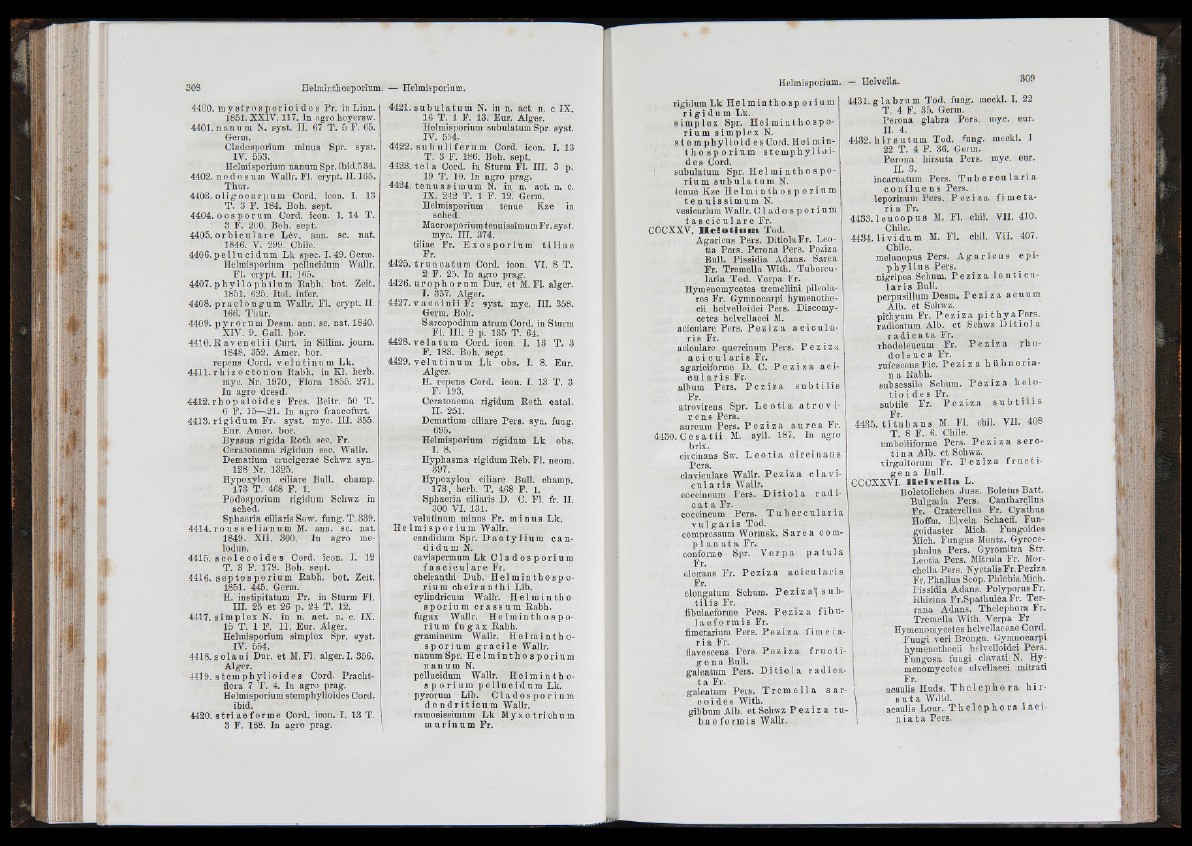 308
Helminthosporium. — Helmisporium.
4400. mystrosporioides Pr. in Linn.
1851. XXIV. 117. In agro hoyersw.
4401. nanum N. syst. II. 67 T. 5 F. 65.
Germ.
Cladosporium minus Spr. syst.
IV. 553.
Helmisporium nanum Spr. ibid.534.
4402. nodosum Wallr. Fl. crypt. II. 165.
Thur.
4403. oligocarpum Cord. icon. I. 13
T. 3 F. 184. Boh. sept.
4404. oosporum Cord. icon. I. 14 T.
3 F. 200. Boh. sept.
4405. orbiculare Lév. ann. sc. nat.
1846. V. 299. Chile.
4406. pellucidum Lk spec. I. 49. Germ.
Helmisporium pellucidum Wallr.
Fl. crypt. II. 165.
4407. phyllophilum Rabh. bot. Zeit.
1851. 625. Ital. infer.
4408. praelongum Wallr. Fl. crypt. II.
166. Thur.
4409. pyrorum Desm. ann. sc. nat. 1840.
XIV. 9. Gall. bor.
4410. Ravenelii Curt. in Sillim. journ.
1848. 352. Amer. bor.
repens Cord. velutinum Lk.
4411. rhizoctonon Rabh. in Kl. herb.
myc. Nr. 1970, Flora 1855. 271.
In agro dresd.
4412. rhopaloides Fres. Beitr. 50 T.
6 F. 15—21. In agro francofurt.
4413. rigidum Fr. syst. myc. III. 355.
Eur. Amer. bor.
Byssus rigida Roth sec. Fr.
Ceratonema rigidum sec. Wallr.
Dematium crucigerae Schwz syn.
128 Nr. 1325.
Hypoxylon ciliare Bull. champ.
173 T. 468 F. 1.
Podosporium rigidum Schwz in
sched.
Sphaeria ciliaris Sow. fung. T. 339.
4414. rousselianum M. ann. sc. nat.
1849. XII. 300. In agro me-
lodun.
4415. scolecoides Cord. icon. I. 12
T. 3 F. 179. Boh. sept.
4416. septosporium Rabh. bot. Zeit.
1851. 445. Germ.
H. instipitatum Pr. in Sturm Fl.
III. 25 et 26 p. 24 T. 12.
4417. simplex N. in n. act. n. c. IX.
15 T. 1 F. 11. Eur. Alger.
Helmisporium simplex Spr. syst.
IV. 554.
4418. solani Dur. et M. Fl. alger. I. 356.
Alger.
4419. stemphylioides Cord. Pracht-
flora 7 T. 4. In agro prag.
Helmisporium stemphylioides Cord.
ibid.
4420. striaeforme Cord. icon. I. 13 T.
3 F. 188. In agro prag.
4421. subulatum N. in n. act. n. c IX.
16 T. 1 F. 13. Eur. Alger.
Helmisporium subulatum Spr. syst.
IV. 554.
4422. subuliferum Cord. icon. I. 13
T. 3 F. 186. Boh. sept.
4423. tela Cord. in Sturm Fl. III. 3 p.
19 T. 10. In agro prag.
4424. tenussimum N. in n. act. n. c.
IX. 242 T. 1 F. 12. Germ.
Helmisporium tenue Kze in
sched.
Macrosporium tenuissimum Fr. syst.
myc. III. 374.
tiliae Fr. Exosporium tiliae
Fr.
4425. truncatum Cord. icon. VI. 8 T.
2 F. 25. In agro prag.
4426. urophorum Dur. et M. Fl. alger.
I. 357. Alger.
4427. vaccinii Fr syst. myc. III. 358.
Germ. Boh.
Sarcopodium atrum Cord. in Sturm
Fl. III. 2 p. 135 T. 64.
4428. velatum Cord. icon. I. 13 T. 3
F. 183. Boh. sept.
4429. velutinum Lk obs. I. 8. Eur.
Alger.
H. repens Cord. icon. I. 13 T. 3
F. 193.
Ceratonema rigidum Roth catal.
II. 251.
Dematium ciliare Pers. syn. fung.
695.
Helmisporium rigidum Lk obs.
I. 8.
Hyphasma rigidum Reb. Fl. neom.
397.
Hypoxylon ciliare Bull. champ.
173, herb. T. 468 F. 1.
Sphaeria ciliaris D. C. Fl. fr. II.
300 VI. 131.
velutinum minus Fr. minus Lk.
Helmisporium Wallr.
candidum Spr. Dactylium can-
didum N.
cavispermum Lk Cladosporium
fasciculare Fr.
cheiranthi Dub. Helminthospo-
rium cheiranthi Lib.
cylindricum Wallr. Helmintho-
sporium crassum Rabh.
fugax Wallr. Helminthospo-
rium fugax Rabh.
gramineum Wallr. Helmintho-
sporium gracile Wallr.
nanum Spr. Helminthosporium
nanum N.
pellucidum Wallr. Helmintho-
sporium pellucidum Lk.
pyrorum Lib. Cladosporium
dendriticum Wallr.
ramosissimum Lk Myxotrichum
murinum Fr.
Helmisporium. — Helvella.
309
rigidum Lk Helminthosporium
rigidum Lk.
simplex Spr. Helminthospo-
rium simplex N.
stemphylioides Cord. Helmin-
thosporium stemphylioi-
des Cord.
subulatum Spr. Helminthospo-
rium subulatum N.
tenue Kze Helminthosporium
tenuissimum N.
vesicarium Wallr. Cladosporium
fasciculare Fr.
CCCXXV. Helotium Tod.
Agaricus Pers. Ditiola Fr. Leo-
tia Pers. Perona Pers. Peziza
Bull. Pissidia Adans. Sarea
Fr. Tremella With. Tubercu-
laria Tod. Verpa Fr.
Hymenomycetes tremellini pileola-
res Fr. Gymnocarpi hymenothe-
cii helvelloidei Pers. Discomy-
cetes helvellacei M.
aciculare Pers. Peziza acicula-
ris Fr.
aciculare quercinum Pers. Peziza
acicularis Fr.
agariciforme D. C. Peziza aci-
cularis Fr.
album Pers. Peziza subtilis
Fr.
atrovirens Spr. Leotia atrovi-
rens Pers.
aureum Pers. Peziza aurea Fr.
4430. Cesatii M. syll. 187. In agro
brix.
circinans Sw. Leotia circinans
Pers.
claviculare Wallr. Peziza clavi-
cularis Wallr.
coccineum Pers. Ditiola radi-
cata Fr.
coccineum Pers. Tubercularia
vulgaris Tod.
compressum Wormsk. Sarea com-
planata Fr.
conforme Spr. Verpa patula
Fr.
elegans Fr. Peziza acicularis
Fr.
elongatum Schum. Peziza sub-
tilis Fr.
fibulaeforme Pers. Peziza fibu-
laeformis Fr.
fimetarium Pers. Peziza fimeta-
ria Fr.
flavescens Pers. Peziza fructi-
gena Bull.
galeatum Pers. Ditiola radica-
ta Fr.
galeatum Pers. Tremella sar-
coides With.
gibbum Alb. et Schwz Peziza tu-
baeformis Wallr.
4431. glabrum Tod. fung. meckl. I. 22
T. 4 F. 35. Germ.
Perona glabra Pers. myc. eur.
II. 4.
4432. hirsutum Tod. fung. meckl. I
22 T. 4 F. 36. Germ.
Perona hirsuta Pers. myc. eur.
II. 3.
incarnatum Pers. Tubercularia
confluens Pers.
leporinum Pers. Peziza fimeta-
ria Fr.
4433. leucopus M. Fl. chil. VII. 410.
Chile.
4434. lividum M. Fl. chil. VII. 407.
Chile.
melanopus Pers. Agaricus epi-
phyllus Pers.
nigripes Schum. Peziza lenticu-
laris Bull.
perpusillum Desm. Peziza acuum
Alb. et Schwz.
pithyum Fr. Peziza pithya Pers.
radicatum Alb. et Schwz Ditiola
radicata Fr.
rhodoleucum Fr. Peziza rho-
doleuca Fr.
rufescens Fic. Peziza hübneria-
na Rabh.
subsessile Schum. Peziza helo-
tioides Fr.
subtile Fr. Peziza subtilis
Fr.
4435. titubans M. Fl. chil. VII. 408
T. 8 F. 6. Chile.
umbelliforme Pers. Peziza sero-
tina Alb. et Schwz.
virgultorum Fr. Peziza fructi-
gena Bull.
CCCXXVI. Helvella L.
Boletolichen Juss. Boletus Batt.
Bulgaria Pers. Cantharellus
Fr. Craterellus Fr. Cyathus
Hoffm. Elvela Schaeff. Fun-
goidaster Mich. Fungoides
Mich. Fungus Mentz. Gyroce-
phalus Pers. Gyromitra Str.
Leotia Pers. Mitrula Fr. Mor-
chella Pers. Nyctalis Fr. Peziza
Fr. Phallus Scop. Phlebia Mich.
Pissidia Adans. Polyporus Fr.
Rhizina Fr. Spathulea Fr. Ter-
rana Adans. Thelephora Fr.
Tremella With. Verpa Fr
Hymenomycetes helvellaceae Cord.
Fungi veri Brongn. Gymnocarpi
hymenothecii helvelloidei Pers.
Fungosa fungi clavati N. Hy-
menomycetes elvellacei mitrati
Fr.
acaulis Huds. Thelephora hir-
suta Willd.
acaulis Lour. Thelephora laci-
niata Pers.